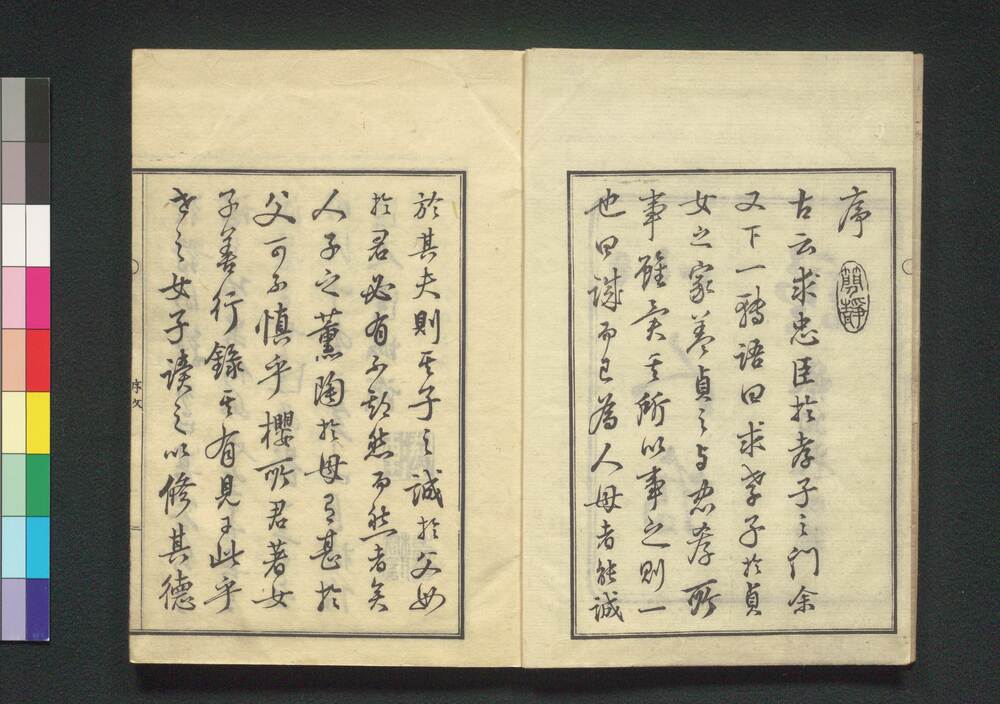 序
簡靜
古云求忠臣於孝子之門余
又下一轉語曰求孝子於貞
女之家蓋貞之與忠孝所
事雖異其所以事之則一
也曰誠而已為人母者能誠
於其夫則其子之誠於父如
於君必有不期然而然者矣
人子之薰陶於母有甚於
父可不慎乎櫻所君著女
子善行錄其有見于此乎
世之女子讀之以修其德
序文